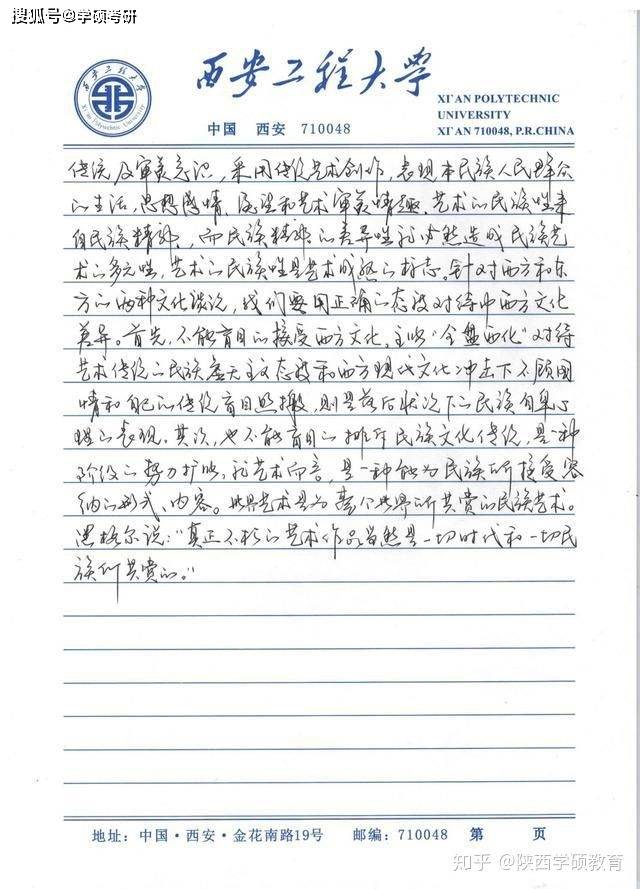 搜狐号@学硕考研
西安工程大学
西安工程大学
Xi'an Polytechnic University
中国 西安 710048
XI'AN POLYTECHNIC
UNIVERSITY
XI'AN 710048, P.R.CHINA
传统及审美意识,采用传统艺术创作,表现本民族人民群众
的生活,思想感情、泛和艺术审美情趣、艺术的民族性来
自民族精神,而民族精神的差异性就必然造成民族艺
术的多元性,艺术的民族性是艺术成熟的标志。针对西方和东
方的两种文化谈论,我们要用正确的态度对待中西方文化
差异。首先,不能盲目的接受西方文化,主张“全盘西化”对待
艺术传统的民族虚无主义态度和西方现代文化冲击下不顾国
情和自己的传统盲目照搬,则是落后状况下的民族自卑心
理的表现。其次,也不能盲目的排斥民族文化传统,是一种
阶级的势力扩张,就艺术而言,是一种能为民族所接受容
纳的形式、内容。世界艺术是为整个世界所共赏的民族艺术。
黑格尔说:“真正不朽的艺术作品当然是一切时代和一切民
族所共赏的。”
地址:中国·西安·金花南路19号 邮编:710048 第 页
知乎 @陕西学硕教育